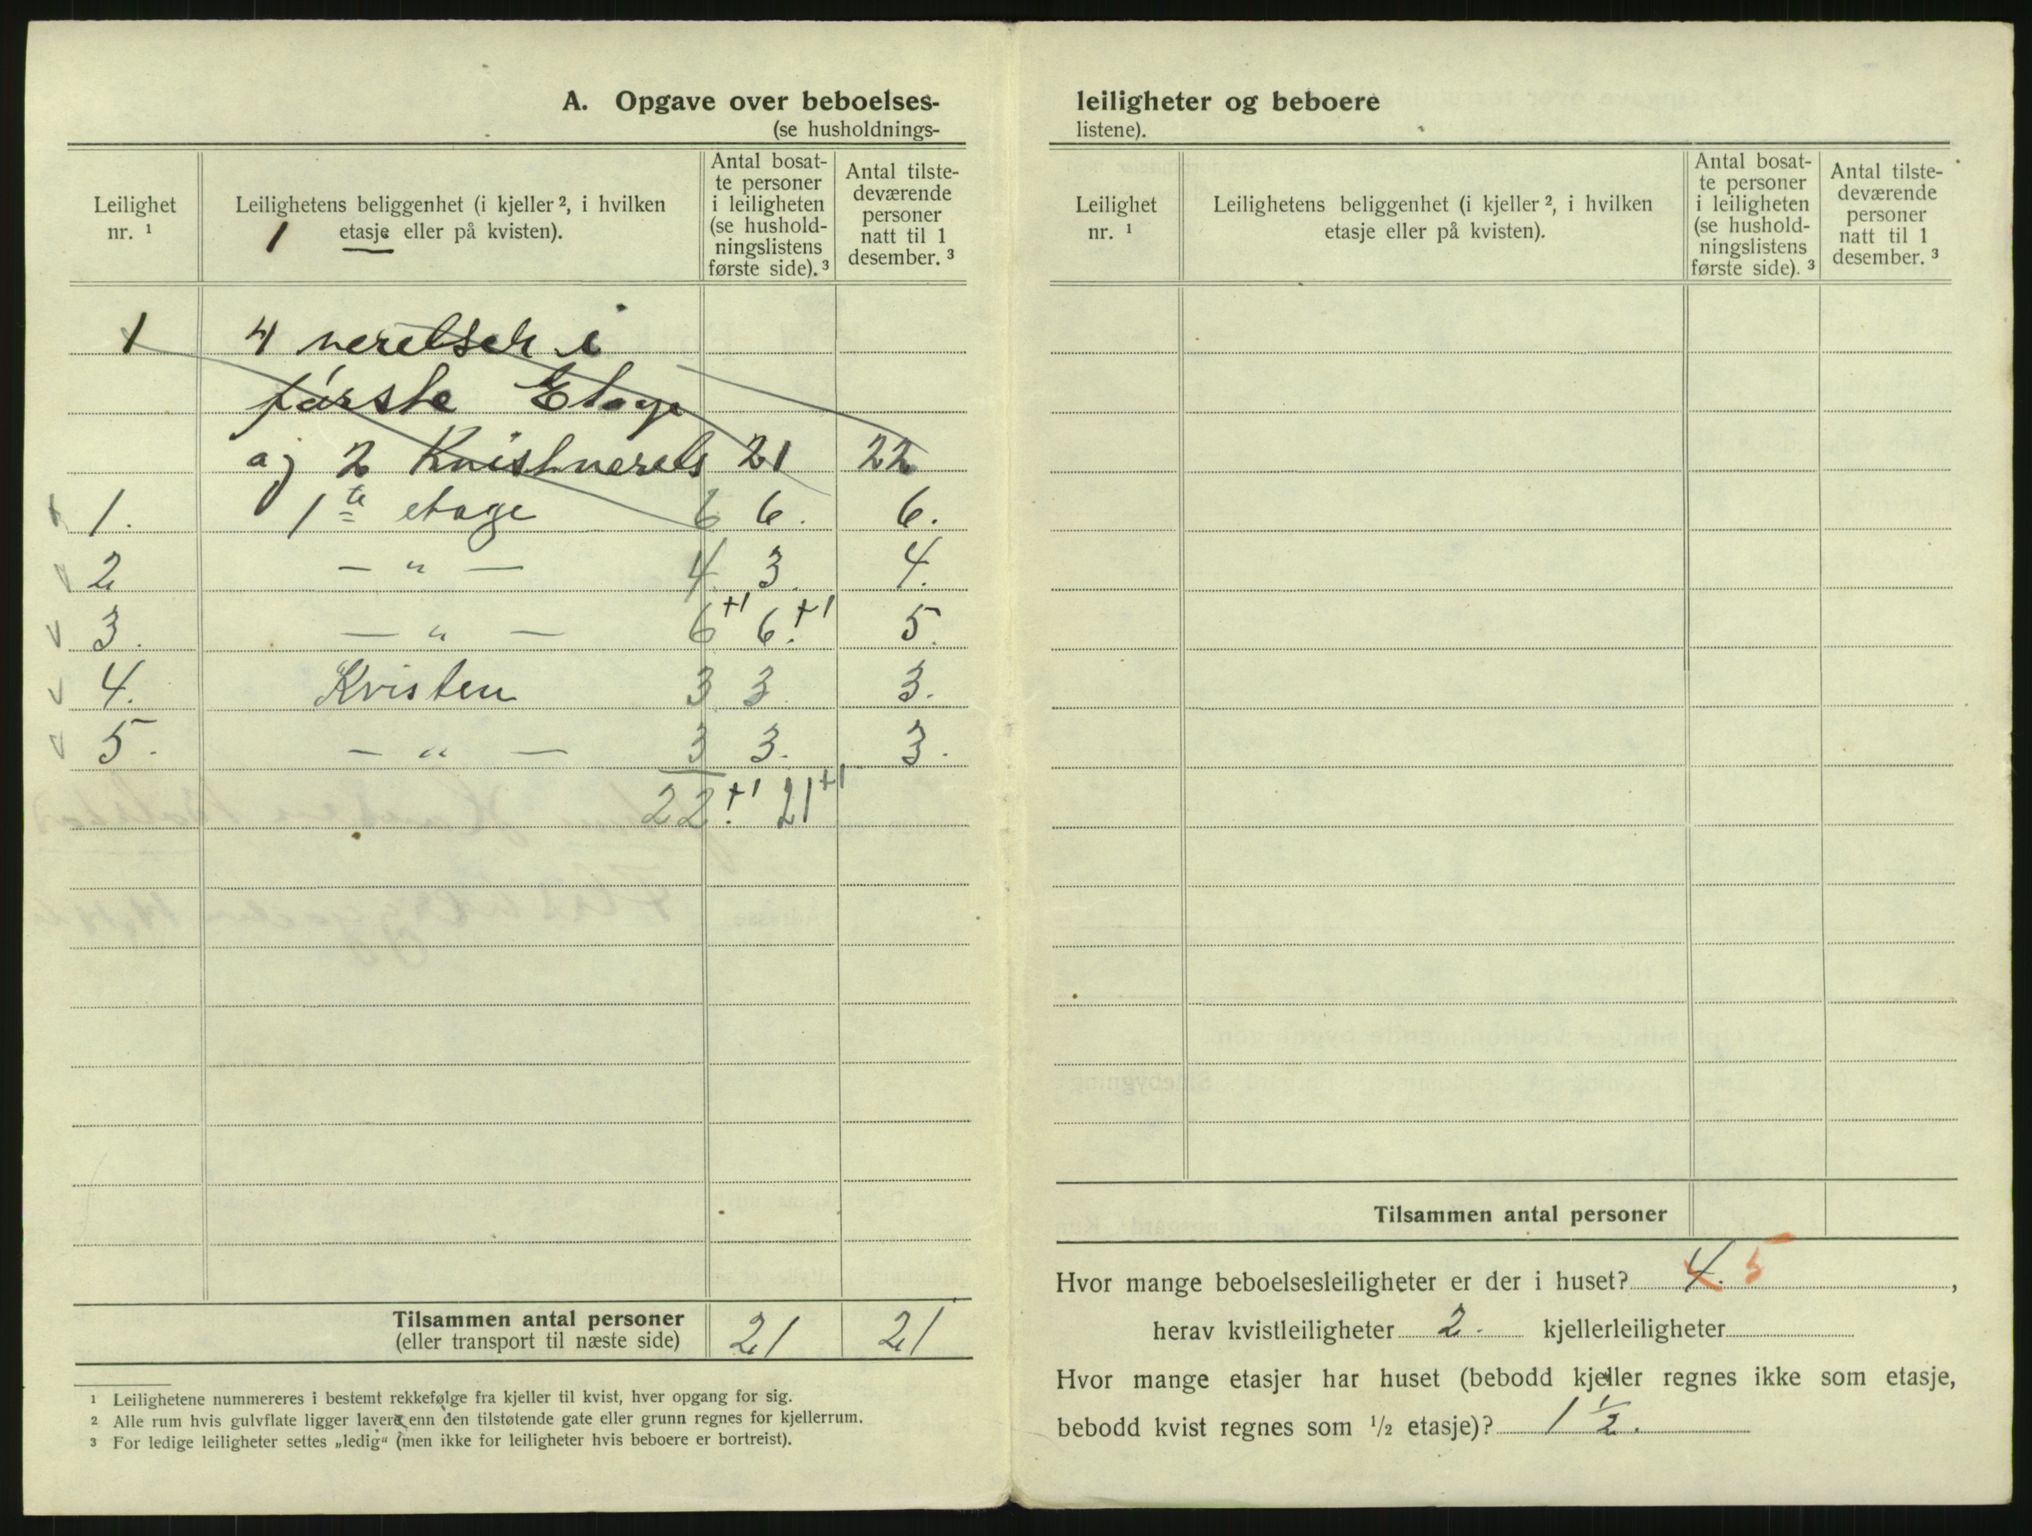 A. Opgave over beboelses-
(se husholdnings-
Leilighet
nr. ¹
Leilighetens beliggenhet (i kjeller ², i hvilken
1 etasje eller på kvisten).
Antal bosat-
te personer
i leiligheten
(se hushold-
ningslistens
første side). ³
Antal tilste-
deværende
personer
natt til 1
desember. ³
1 4 verelser i
første Etage
og 2 Kvistverels 21 22
1. 1te etage 6 6. 6.
2 — " — 4 3. 4.
3. — " — 6+1 6.+1 5.
4. Kvisten 3 3. 3.
5. — " — 3 3. 3.
22.+1 21+1
Tilsammen antal personer
(eller transport til næste side) 21 21
¹ Leilighetene nummereres i bestemt rekkefølge fra kjeller til kvist, hver opgang for sig.
² Alle rum hvis gulvflate ligger lavere enn den tilstøtende gate eller grunn regnes for kjellerrum.
³ For ledige leiligheter settes „ledig“ (men ikke for leiligheter hvis beboere er bortreist).
leiligheter og beboere
listene).
Leilighet
nr. ¹
Leilighetens beliggenhet (i kjeller ², i hvilken
etasje eller på kvisten).
Antal bosat-
te personer
i leiligheten
(se hushold-
ningslistens
første side). ³
Antal tilste-
deværende
personer
natt til 1
desember. ³
Tilsammen antal personer
Hvor mange beboelsesleiligheter er der i huset? 4. 5 ,
herav kvistleiligheter 2. kjellerleiligheter
Hvor mange etasjer har huset (bebodd kjeller regnes ikke som etasje,
bebodd kvist regnes som ½ etasje)? 1 ½.